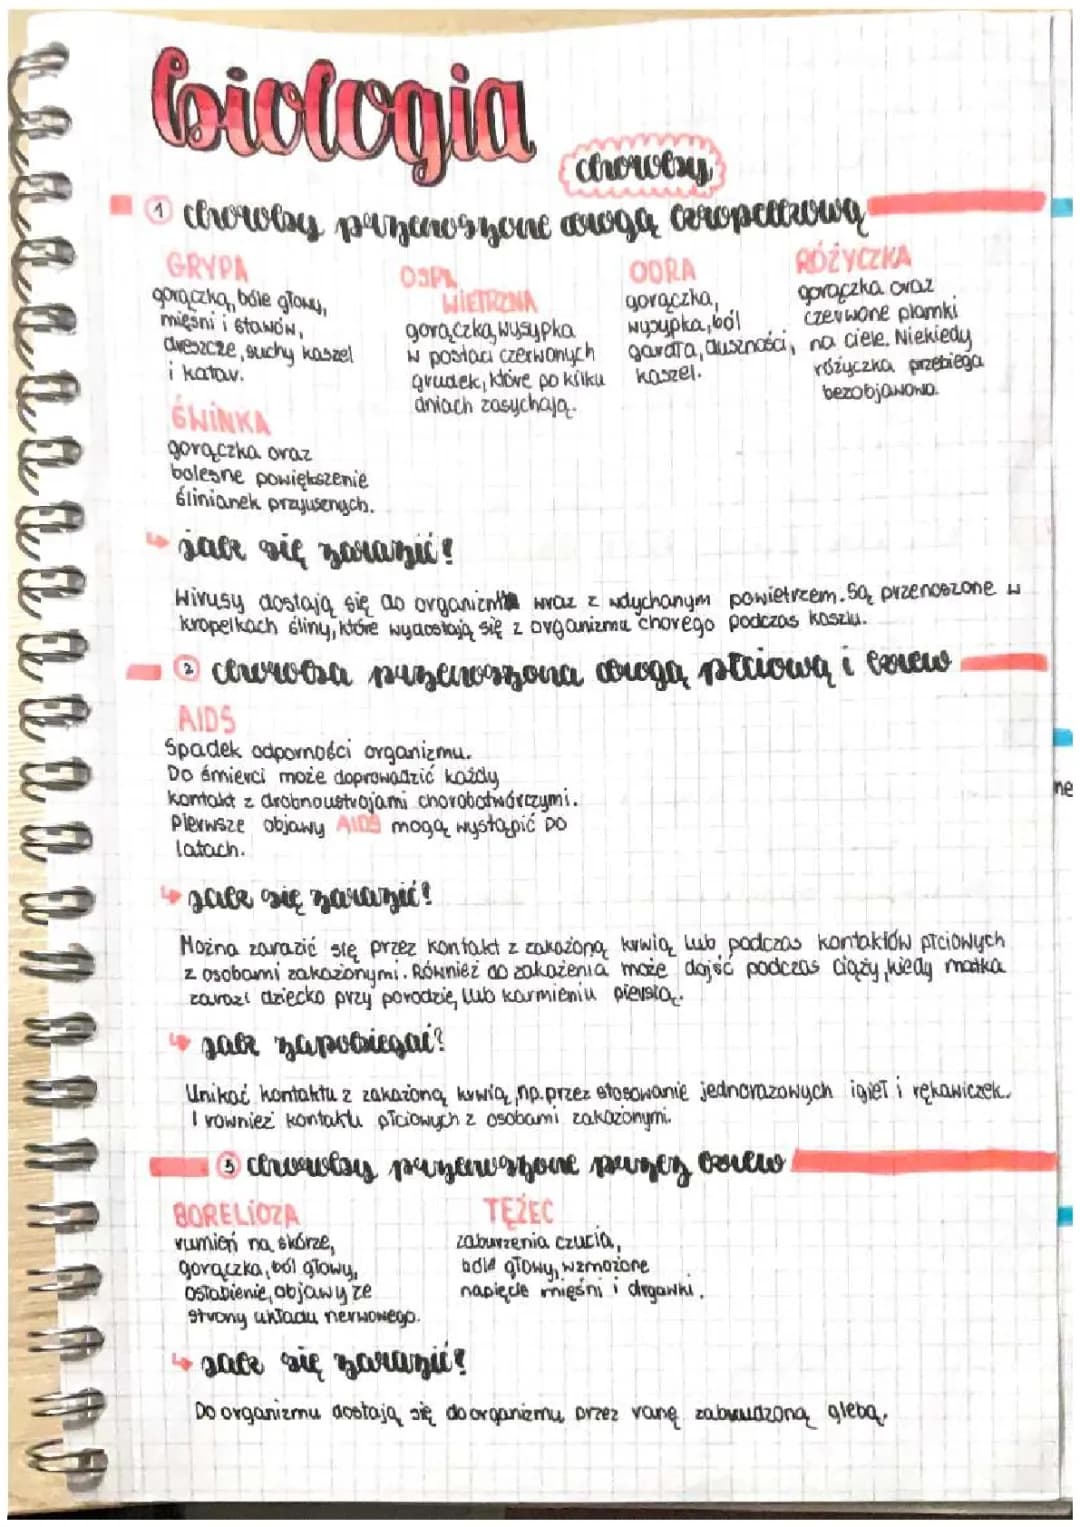 biologia
choroby
1 choroby przenoszone drogą kropelkową
GRYPA
gorączka, bóle głowy,
mięśni i stawów,
dreszcze, suchy kaszel
i katar.
OSPA
WIETRZNA
gorączka, wysypka
w postaci czerwonych
grudek, które po kilku
dniach zasychają.
ODRA
gorączka,
wysypka, ból
gardła, duszności,
kaszel.
RÓŻYCZKA
gorączka oraz
czerwone plamki
na ciele. Niekiedy
różyczka przebiega
bezobjawowo.
ŚWINKA
gorączka oraz
bolesne powiększenie
ślinianek przyusznych.
↳ jak się zarazić?
Wirusy dostają się do organizmu wraz z wdychanym powietrzem. Są przenoszone w
kropelkach śliny, które wydostają się z organizmu chorego podczas kaszlu.
2 choroba przenoszona drogą płciową i krew
AIDS
Spadek odporności organizmu.
Do śmierci może doprowadzić każdy
kontakt z drobnoustrojami chorobotwórczymi.
Pierwsze objawy AIDS mogą wystąpić po
latach.
↳ jak się zarazić?
Można zarazić się przez kontakt z zakażoną krwią lub podczas kontaktów płciowych
z osobami zakażonymi. Również do zakażenia może dojść podczas ciąży, kiedy matka
zarazi dziecko przy porodzie, lub karmieniu piersią.
↳ jak zapobiegać?
Unikać kontaktu z zakażoną krwią, np. przez stosowanie jednorazowych igieł i rękawiczek.
I rownież kontaktu płciowych z osobami zakażonymi.
3 choroby przenoszone przez krew
BORELIOZA
rumień na skórze,
gorączka, ból głowy,
osłabienie, objawy ze
strony układu nerwowego.
TĘŻEC
zaburzenia czucia,
bóle głowy, wzmożone
napięcie mięśni i drgawki.
↳ jak się zarazić?
Do organizmu dostają się do organizmu przez ranę zabrudzoną glebą.
ne